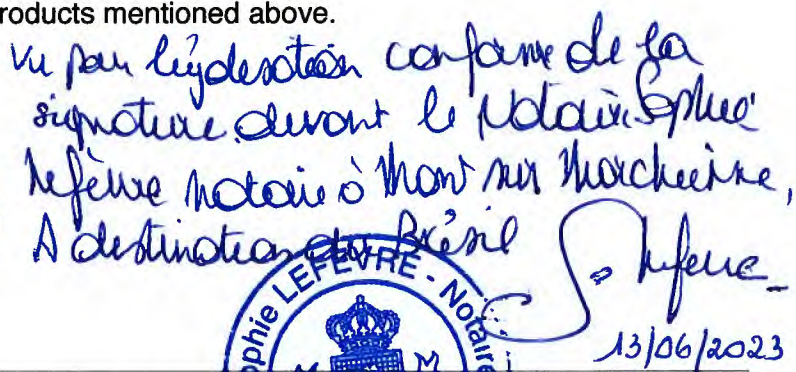 roducts mentioned above.
Vu pour légalisation conforme de la
signature devant le Notaire Sophie
Lefèvre notaire à Mont sur Marchienne,
A destination du Brésil
S. Lefevre
ophie LEFEVRE - Notaire
13/06/2023